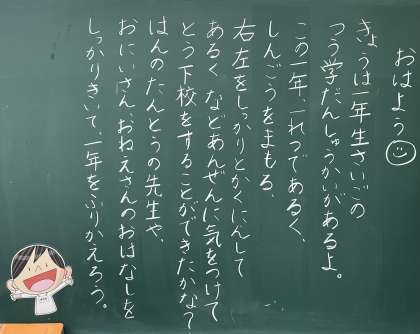 おはよう
きょうは一年生さいごの
つう学だんしゅうかいがあるよ。
この一年、一れつであるく、
しんごうをまもる、
右左をしっかりとかくにんして
あるく、などあんぜんに気をつけて
とう下校をすることができたかな？
はんのたんとうの先生や、
おにいさん、おねえさんのおはなしを
しっかりきいて、一年をふりかえろう。